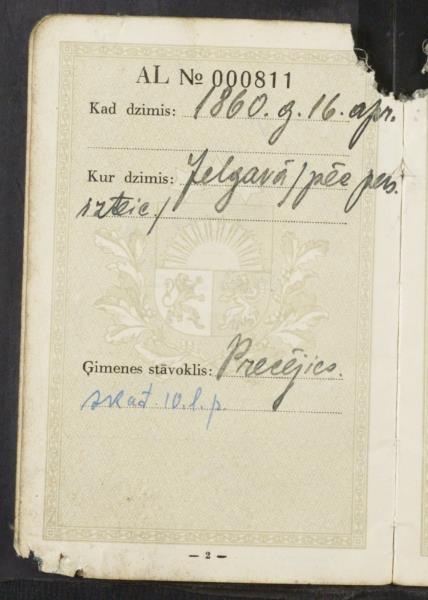 AL № 000811
Kad dzimis: 1860. g. 16. apr.
Kur dzimis: Jelgavā /pēc pers.
izteic/
Ģimenes stāvoklis: Precējies.
skat. 10. l. p.
— 2 —